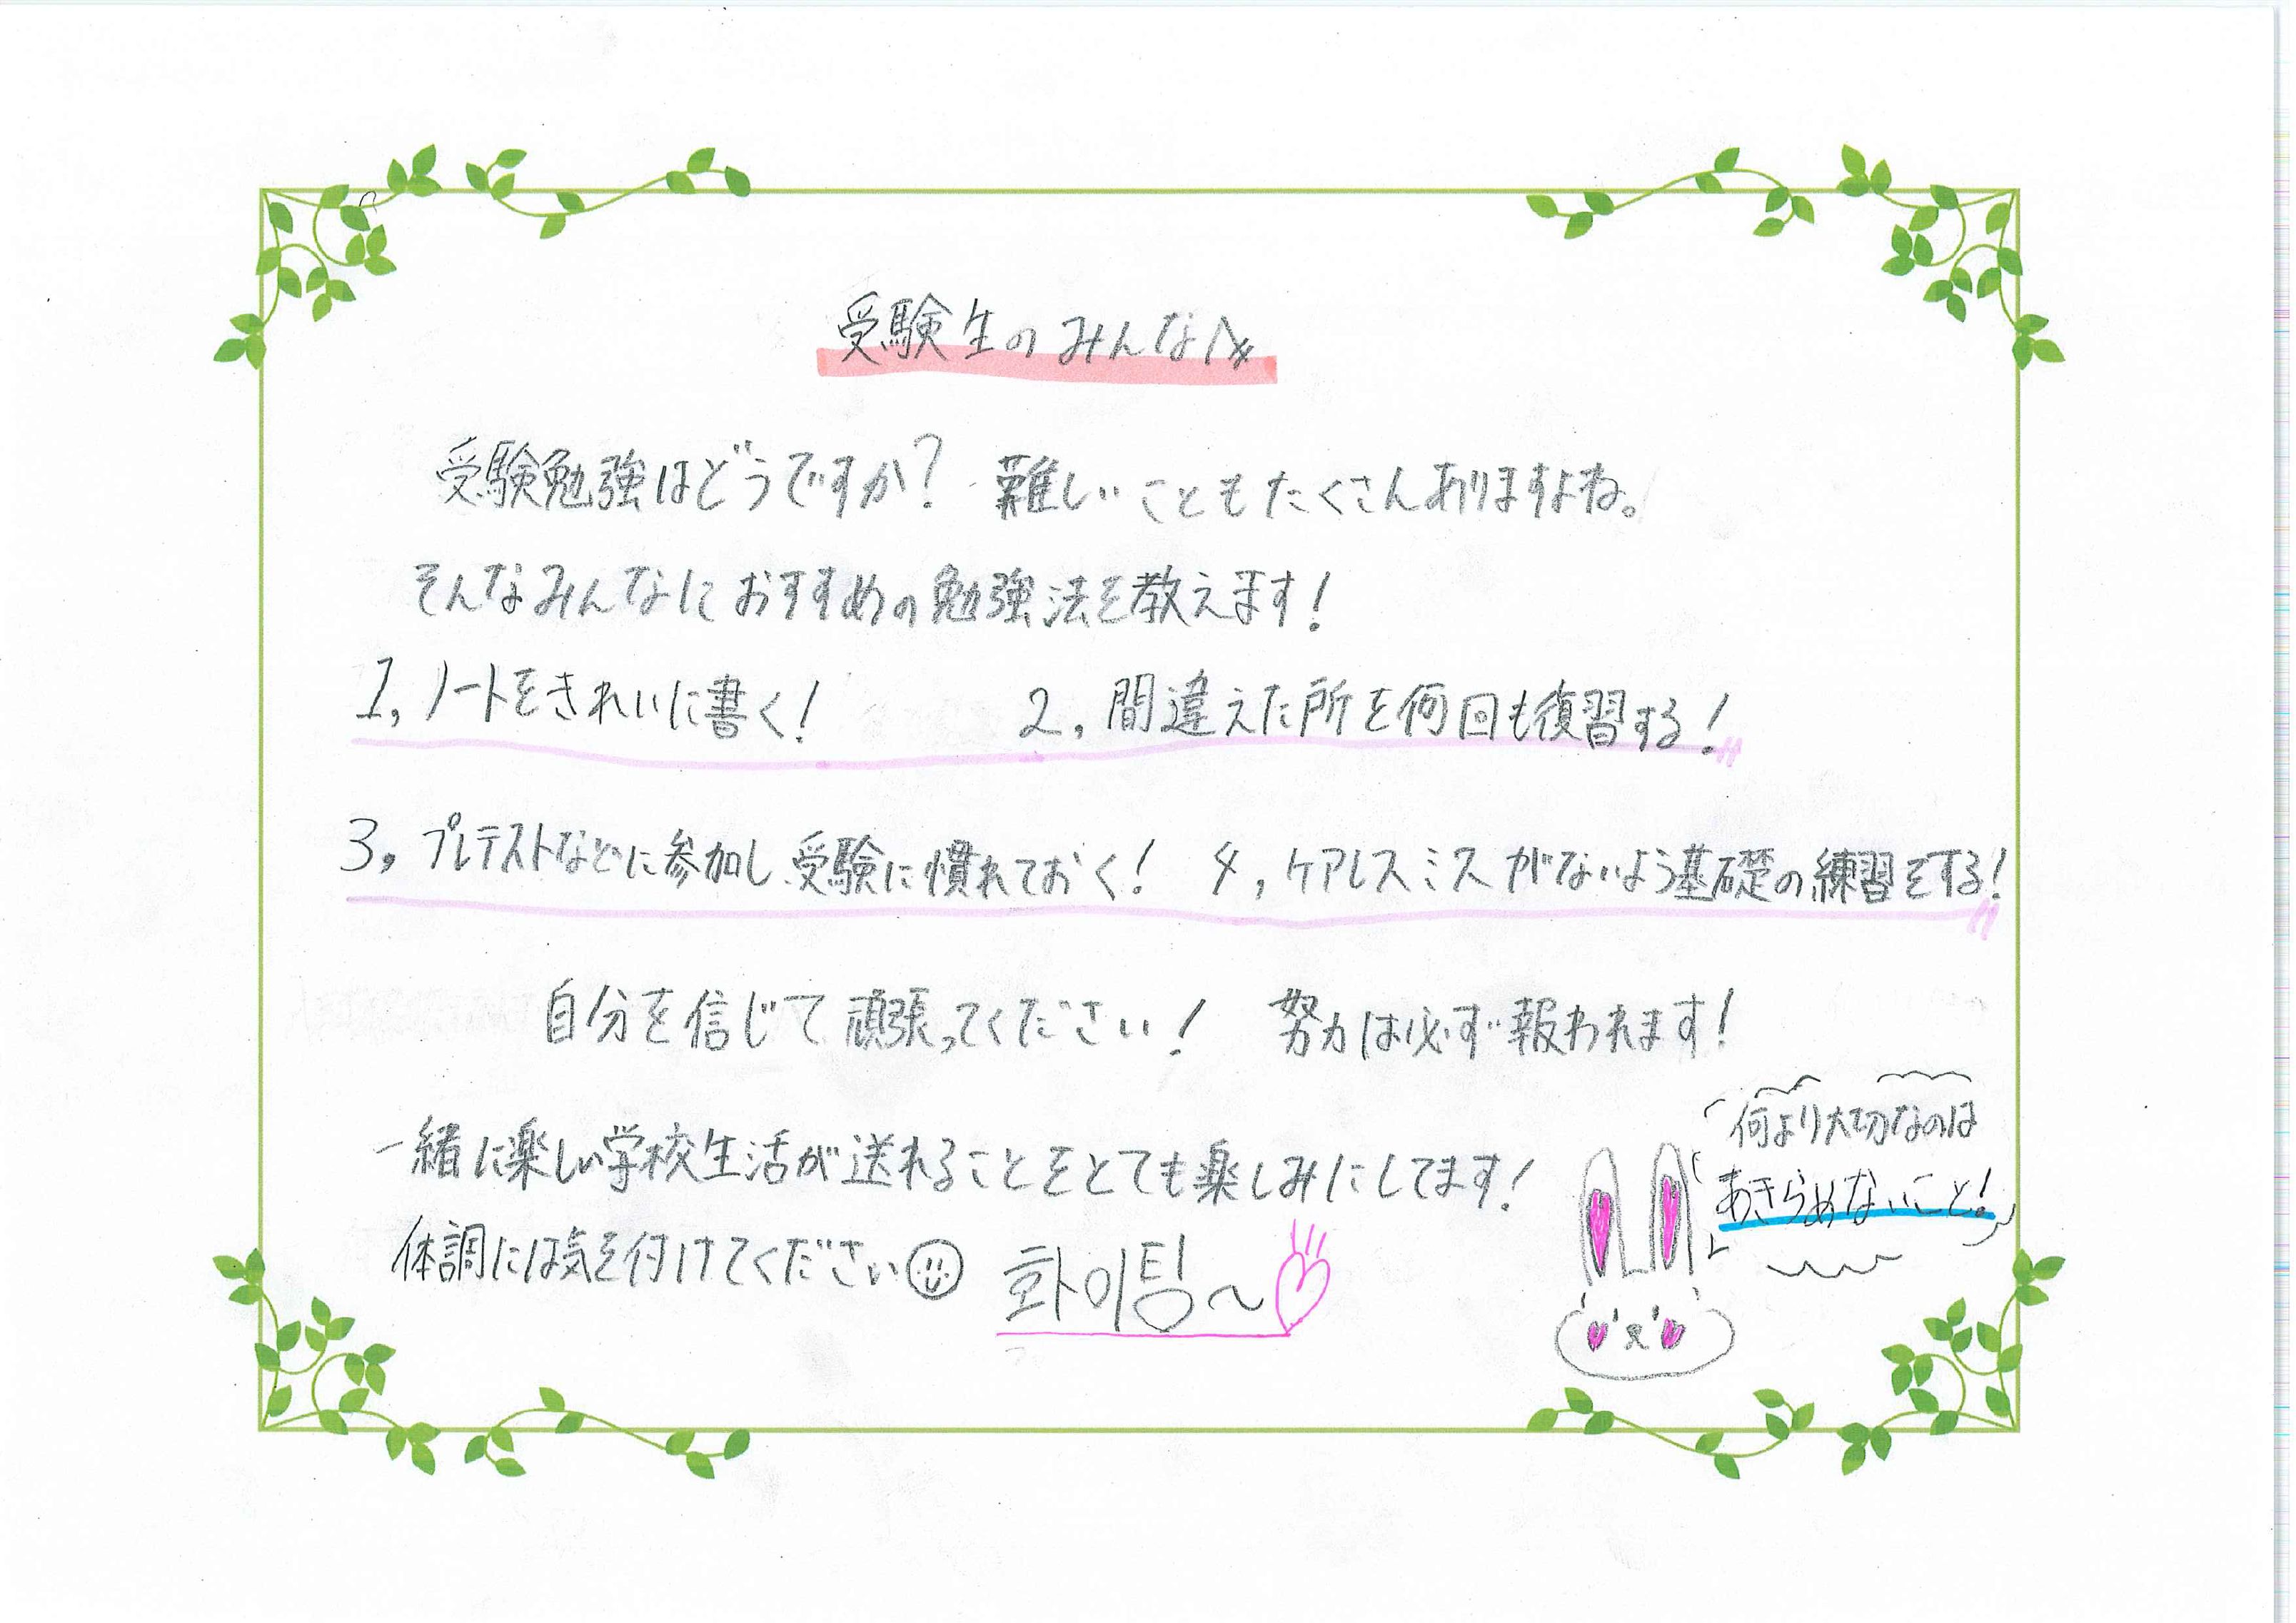 受験生のみんなへ
受験勉強はどうですか? 難しいこともたくさんありますよね。
そんなみんなにおすすめの勉強法を教えます!
1, ノートをきれいに書く! 2, 間違えた所を何回も復習する!
3, プレテストなどに参加し、受験に慣れておく! 4, ケアレスミスがないよう基礎の練習をする!
自分を信じて頑張ってください! 努力は必ず報われます!
一緒に楽しい学校生活が送れることをとても楽しみにしてます!
体調には気を付けてください 화이팅~
何より大切なのは
あきらめないこと!